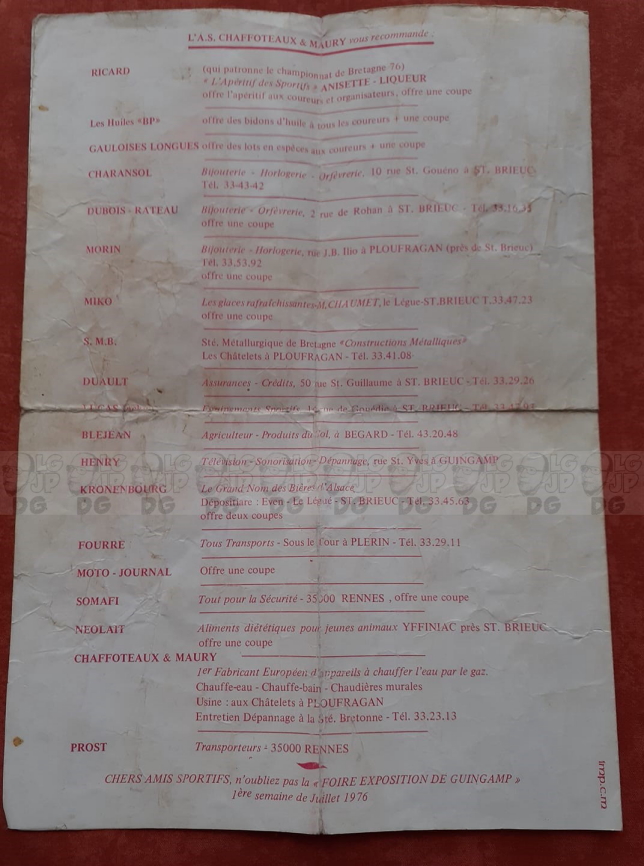 L'A.S. CHAFFOTEAUX & MAURY vous recommande .
RICARD (qui patronne le championnat de Bretagne 76)
« L'Apéritif des Sportifs » ANISETTE - LIQUEUR
offre l'apéritif aux coureurs et organisateurs, offre une coupe
Les Huiles «BP» offre des bidons d'huile à tous les coureurs + une coupe
GAULOISES LONGUES offre des lots en espèces aux coureurs + une coupe
CHARANSOL Bijouterie - Horlogerie - Orfèvrerie, 10 rue St. Gouéno à ST. BRIEUC
Tél. 33-43-42
DUBOIS - RATEAU Bijouterie - Orfèvrerie, 2 rue de Rohan à ST. BRIEUC - Tél.
offre une coupe
MORIN Bijouterie - Horlogerie, rue J.B. Illio à PLOUFRAGAN (près de St. Brieuc)
Tél. 33.53.92
offre une coupe
MIKO Les glaces rafraîchissantes-M.CHAUMET, le Légue-ST.BRIEUC T.33.47.23
offre une coupe
S. M.B. Sté. Métallurgique de Bretagne «Constructions Métalliques»
Les Châtelets à PLOUFRAGAN - Tél. 33.41.08
DUAULT Assurances - Crédits, 50 rue St. Guillaume à ST. BRIEUC - Tél. 33.29.26
LUCAS Equipements Sportifs, à ST. BRIEUC - Tél.
BLEJEAN Agriculteur - Produits du Sol, à BEGARD - Tél. 43.20.48
HENRY Télévision - Sonorisation - Dépannage, rue St. Yves à GUINGAMP
KRONENBOURG Le Grand Nom des Bières d'Alsace
Dépositiare : Even - Le Légué - ST. BRIEUC - Tél. 33.45.63
offre deux coupes
FOURRE Tous Transports - Sous le Tour à PLERIN - Tél. 33.29.11
MOTO - JOURNAL Offre une coupe
SOMAFI Tout pour la Sécurité - 35000 RENNES , offre une coupe
NEOLAIT Aliments diététiques pour jeunes animaux YFFINIAC près ST. BRIEUC
offre une coupe
CHAFFOTEAUX & MAURY
1er Fabricant Européen d'appareils à chauffer l'eau par le gaz.
Chauffe-eau - Chauffe-bain - Chaudières murales
Usine : aux Châtelets à PLOUFRAGAN
Entretien Dépannage à la Sté. Bretonne - Tél. 33.23.13
PROST Transporteurs - 35000 RENNES
CHERS AMIS SPORTIFS, n'oubliez pas la « FOIRE EXPOSITION DE GUINGAMP »
1ère semaine de Juillet 1976
imp.c.m